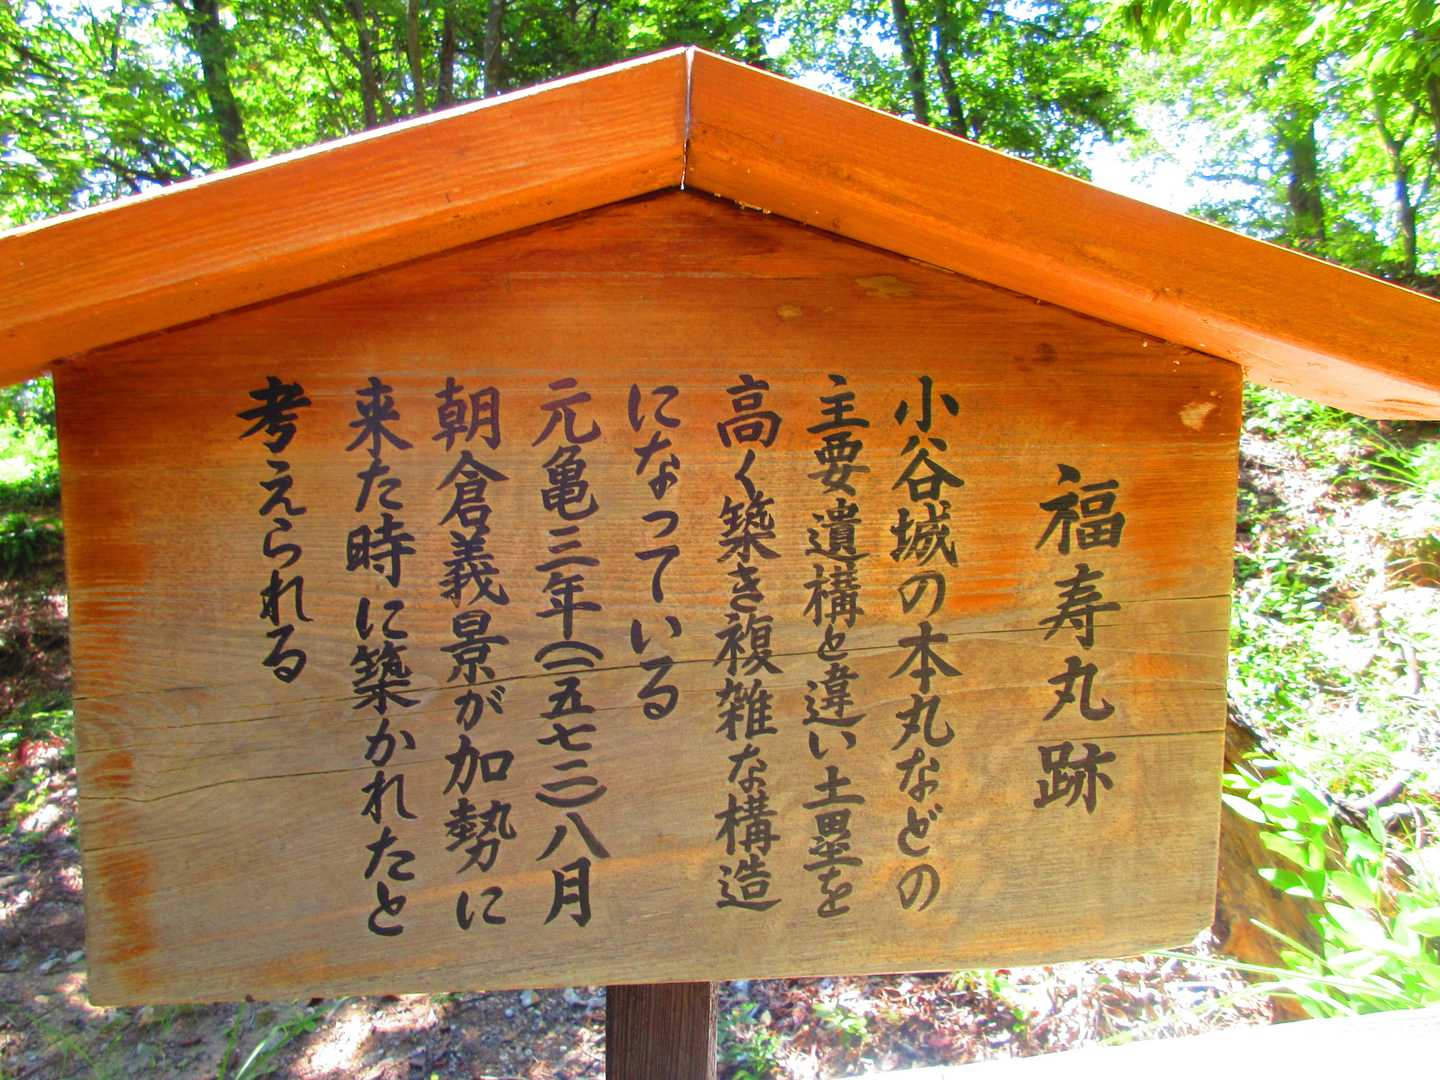 福寿丸跡
小谷城の本丸などの
主要遺構と違い土塁を
高く築き複雑な構造
になっている
元亀三年(一五七二)八月
朝倉義景が加勢に
来た時に築かれたと
考えられる